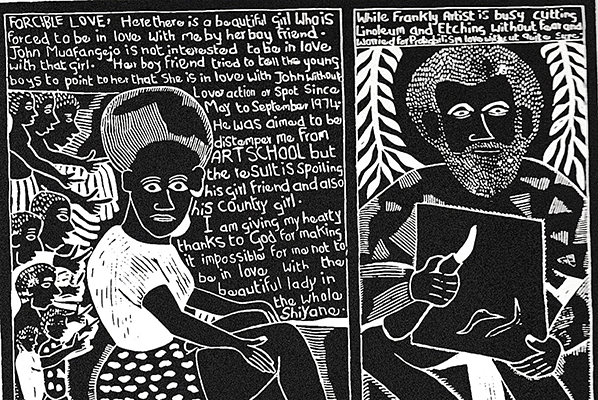 FORCIBLE LOVE, Here there is a beautiful girl Who is
forced to be in love With me by her boy friend.
John Muafangejo is not interested to be in love
with that girl. Her boy friend tried to tell the young
boys to point to her that she is in love with John without
Love action or Spot Since
May to September 1974
He was aimed to be
distemper me from
ART SCHOOL but
the reSult is Spoiling
his girl Friend and also
his Country girl.
I am giving my heaty
thanks to God For making
it impossible For me not to
be in love With the
beautiful lady in
the whole
Shiyane.
While Frankly Artist is busy cutting
Linoleum and Etching Without Fear and
Worried for love